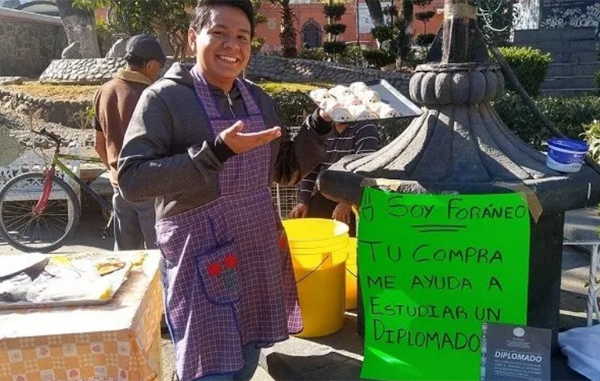 ¡! SOY FORÁNEO
TU COMPRA
ME AYUDA A
ESTUDIAR UN
DIPLOMADO
DIPLOMADO